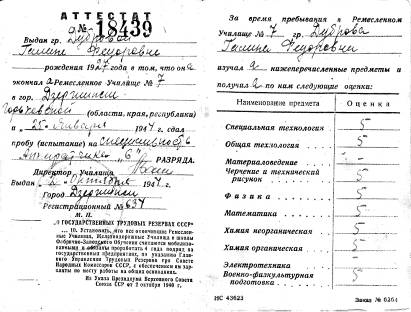 АТТЕСТАТ
а№ 18439
Выдан гр. Дуброва
Галине Федоровне
рождения 1927 года в том, что она
окончила Ремесленное Училище № 7
в гор. Дзержинск
Горьковской (области, края, республики)
и 25 января 1947 г. сдал
пробу (испытание) на специальность
Аппаратчика „6“ РАЗРЯДА.
Директор Училища
Выдан 2 октября 194 г.
Город Дзержинск
Регистрационный № 634
М. П.
О ГОСУДАРСТВЕННЫХ ТРУДОВЫХ РЕЗЕРВАХ СССР“
... 10. Установить, что все окончившие Ремеслен-
ные Училища, Железнодорожные Училища и школы
Фабрично-Заводского Обучения считаются мобилизо-
ванными и обязаны проработать 4 года подряд на
государственных предприятиях, по указанию Главно-
го Управления Трудовых Резервов при Совете
Народных Комиссаров СССР, с обеспечением им зар-
платы по месту работы на общих основаниях.
Из Указа Президиума Верховного Совета
Союза ССР от 2 октября 1940 г.
За время пребывания в Ремесленном
Училище № 7 гр. Дуброва
Галина Федоровна
изучала нижеперечисленные предметы и
получила по ним следующие оценки:
Наименование предмета Оценка
Специальная технология 5
Общая технология 5
Материаловедение -
Черчение и технический
рисунок 5
Физика 5
Математика 5
Химия неорганическая 5
Химия органическая 5
Электротехника -
Военно-физкультурная
подготовка 5
ИС 43623 Заказ № 6261